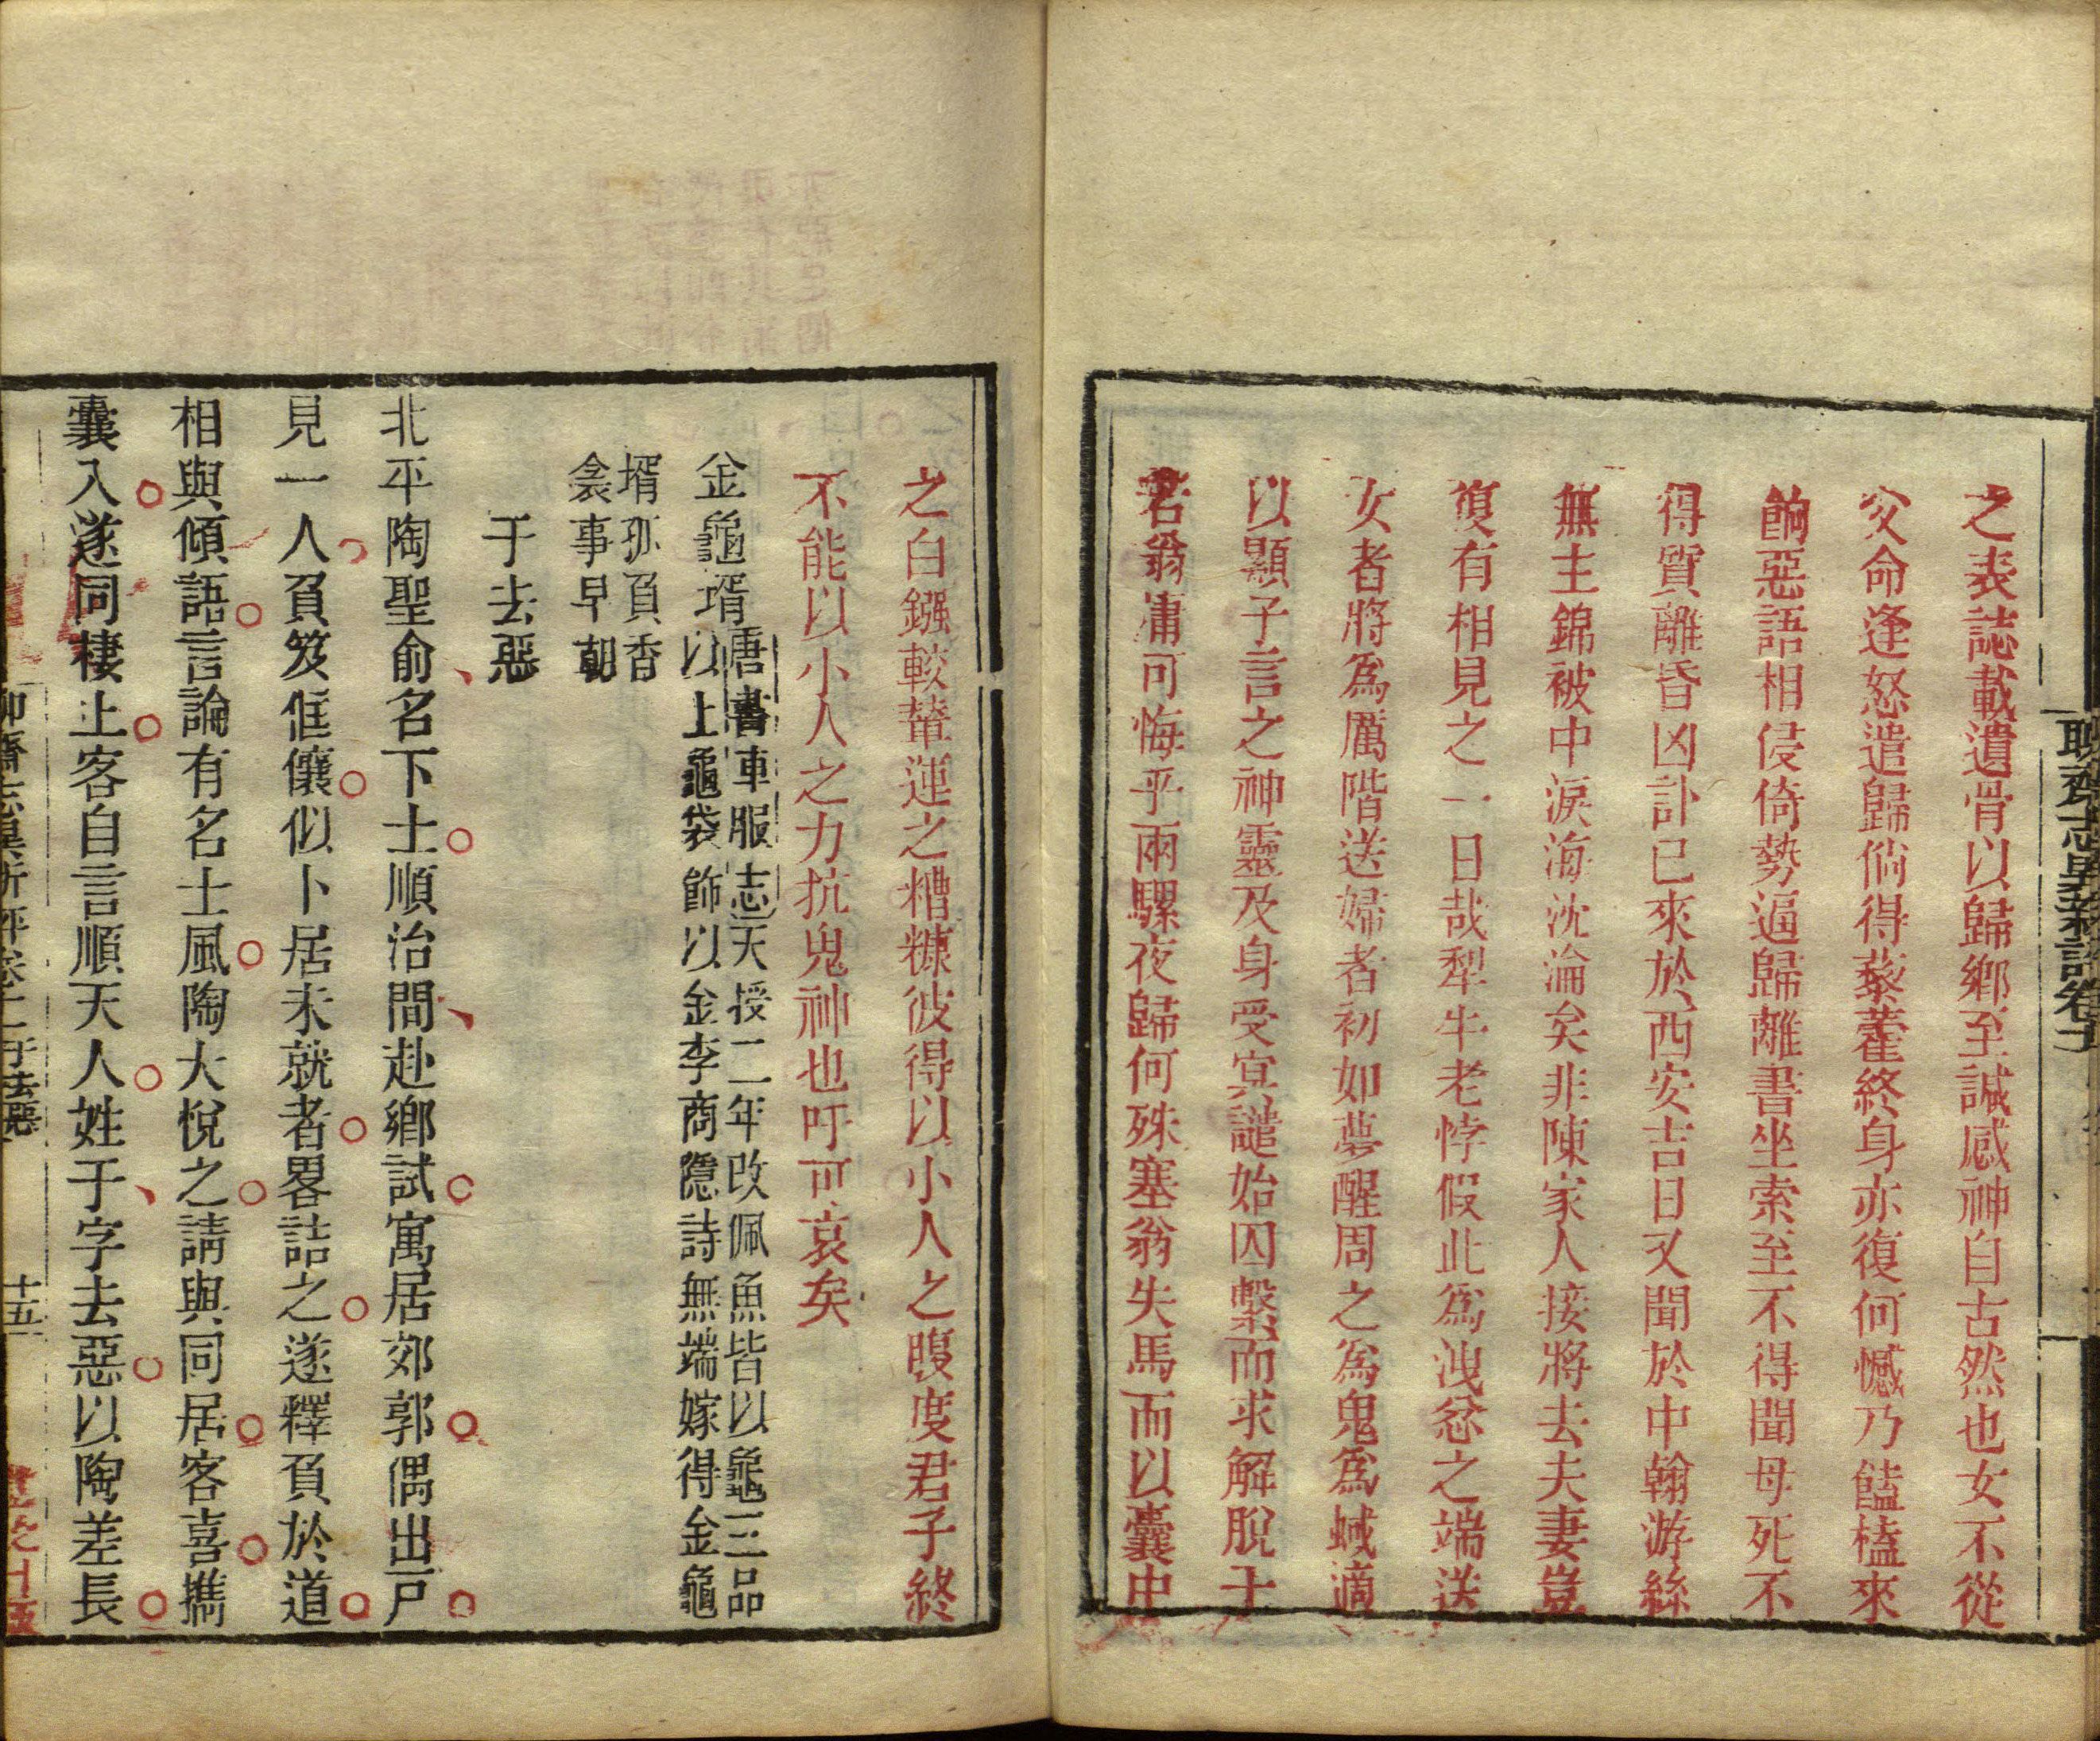 聊齋志異新評卷十
之表誌載遺骨以歸鄉至誠感神自古然也女不從
父命逢怒遣歸倘得藜藿終身亦復何憾乃饁榼來
餉惡語相侵倚勢逼歸離書坐索至不得聞母死不
得實離昏凶訃已來於西安吉日又聞於中翰游絲
無主錦被中淚海沈淪矣非陳家人接將去夫妻豈
復有相見之一日哉犁牛老悖假此為洩忿之端送
女者將為厲階送婦者初如夢醒周之為鬼為蜮適
以顯子言之神靈及身受冥譴始囚繫而求解脫于
君翁庸可悔乎兩騾夜歸何殊塞翁失馬而以囊中
之白鏹較輦運之糟糠彼得以小人之腹度君子終
不能以小人之力抗鬼神也吁可哀矣
金龜壻唐書車服志天授二年改佩魚皆以龜三品
以上龜袋飾以金李商隱詩無端嫁得金龜
壻孤負香
衾事早朝
于去惡
北平陶聖俞名下士順治間赴鄉試寓居郊郭偶出戶
見一人負笈偟儴似卜居未就者畧詰之遂釋負於道
相與傾語言論有名士風陶大悅之請與同居客喜攜
囊入遂同棲止客自言順天人姓于字去惡以陶差長
聊齋志異新評卷十 于去惡
十五